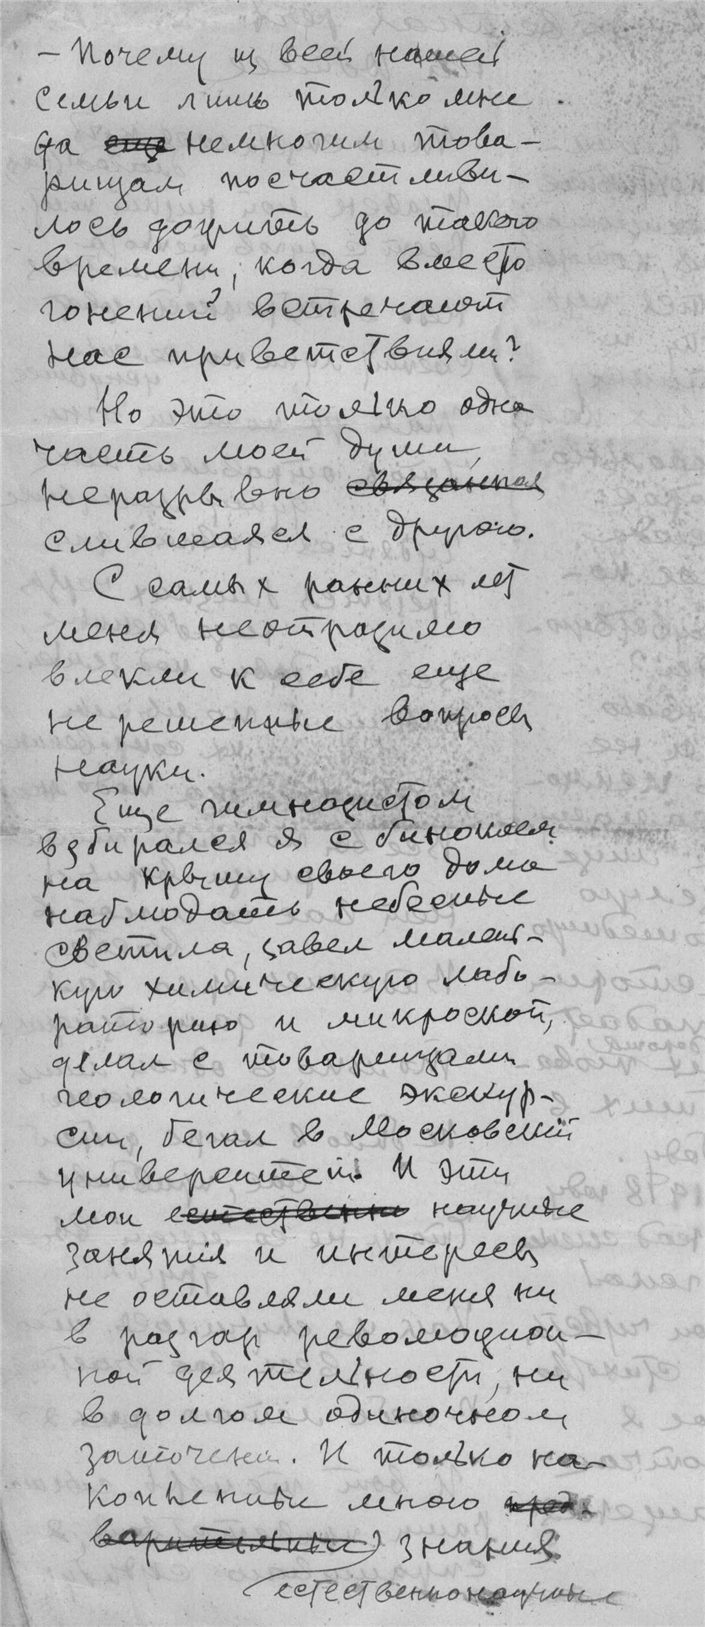 — Почему из всей нашей
семьи лишь только мне
да ~~еще~~ немногим това-
рищам посчастливи-
лось дожить до такого
времени, когда вместо
гонений встречают
нас приветствиями?
Но это только одна
часть моей души,
неразрывно ~~связанная~~
слившаяся с другою.
С самых ранних лет
меня неотразимо
влекли к себе еще
нерешенные вопросы
науки.
Еще гимназистом
взбирался я с биноклем
на крышу своего дома
наблюдать небесные
светила, завел малень-
кую химическую лабо-
раторию и микроскоп,
делал с товарищами
геологические экскур-
сии, бегал в Московский
университет. И эти
мои ~~естественно~~ научные
занятия и интересы
не оставляли меня ни
в разгар революцион-
ной деятельности, ни
в долгом одиночном
заточении. И только на-
копленные мною ~~пред-~~
~~варительные~~ знания
естественнонаучные